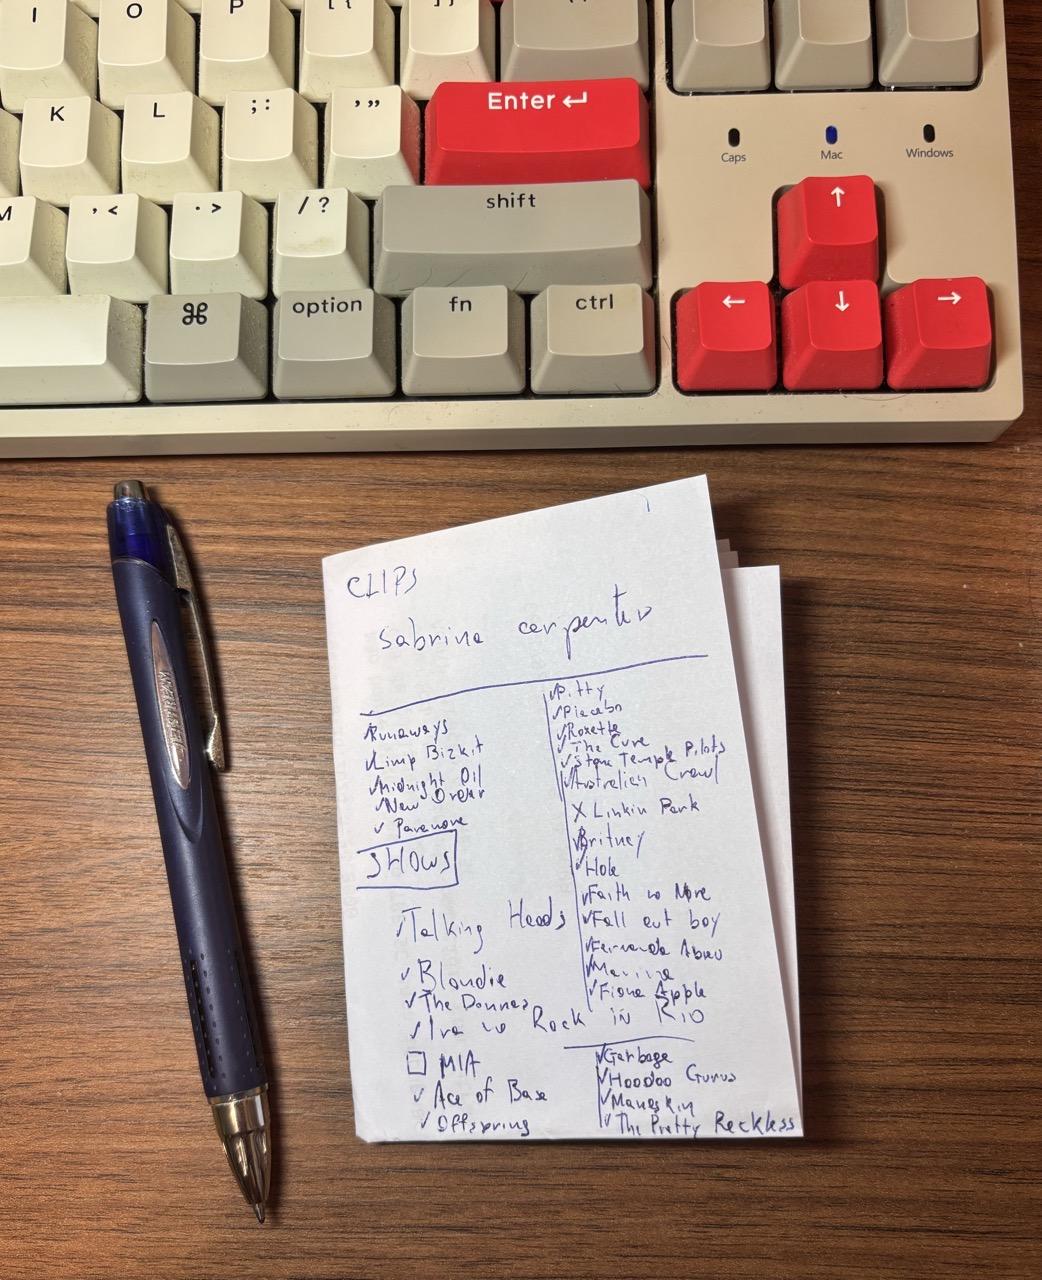 I
O
P
[ {
] }
K
L
; :
' "
Enter
M
, <
. >
/ ?
shift
⌘
option
fn
ctrl
Caps
Mac
Windows
↑
←
↓
→
CLIPS
Sabrina carpenter
Runaways
Limp Bizkit
Midnight Oil
New Order
Paramore
SHOWS
Talking Heads
Blondie
The Donnas
Ira no Rock in Rio
MIA
Ace of Base
Offspring
Pitty
Placebo
Roxette
The Cure
Stone Temple Pilots
Australian Crawl
X Linkin Park
Britney
Hole
Faith no More
Fall out boy
Fernanda Abreu
Marina
Fiona Apple
Garbage
Hoodoo Gurus
Maneskin
The Pretty Reckless